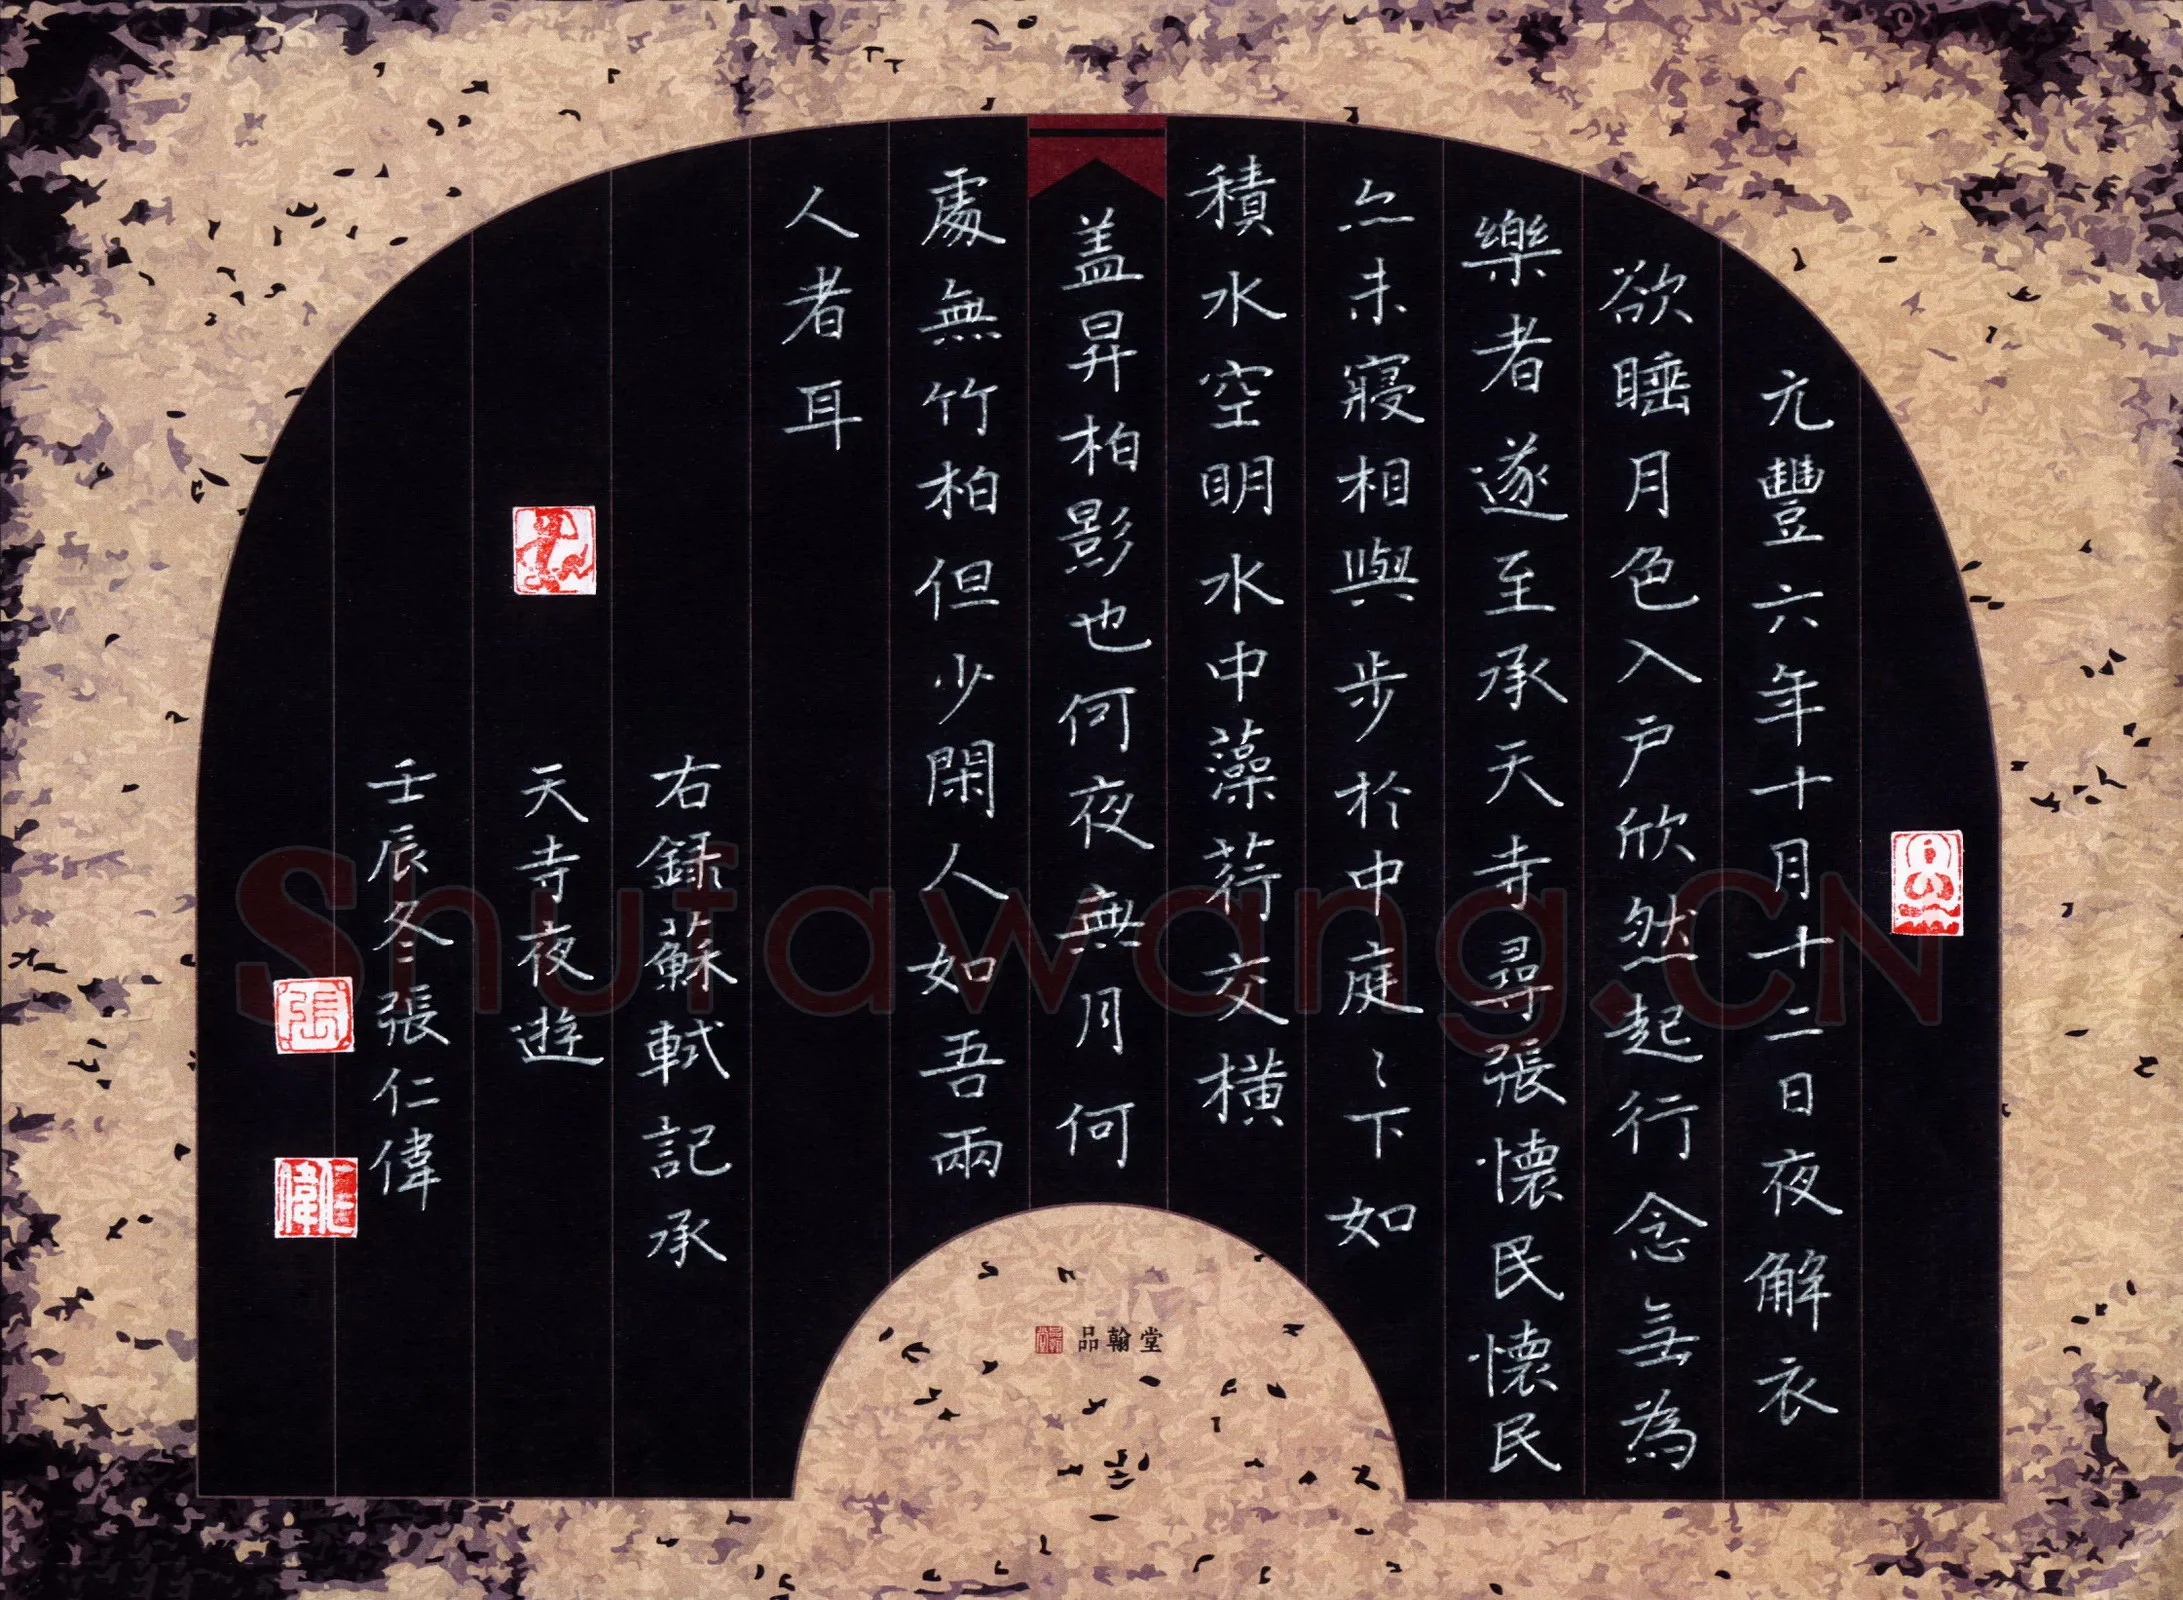 元豐六年十月十二日夜解衣
欲睡月色入户欣然起行念無為
樂者遂至承天寺尋張懷民懷民
亦未寢相與步於中庭〻下如
積水空明水中藻荇交橫
盖昇柏影也何夜無月何
處無竹柏但少閑人如吾兩
人者耳
右録蘇軾記承
天寺夜遊
壬辰冬張仁偉
張
仁偉
品翰堂
Shufawang.CN